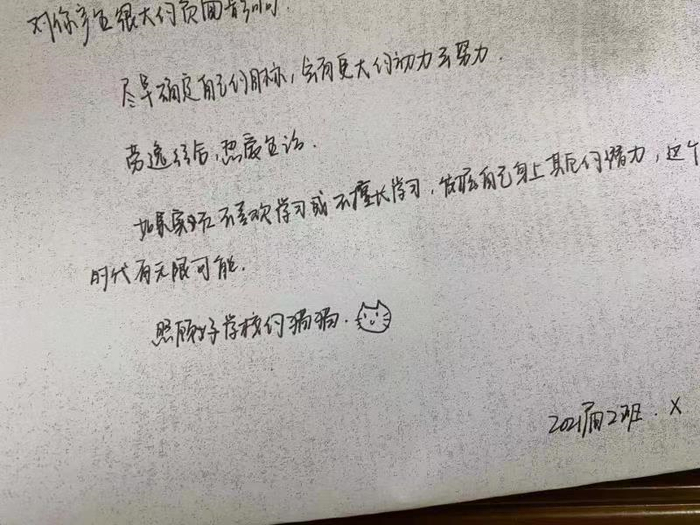 对你产生很大的负面影响.
尽早确定自己的目标，会有更大的动力去努力.
劳逸结合，热爱生活.
如果实在不喜欢学习或不擅长学习，发掘自己身上其他的潜力，这个
时代有无限可能.
照顾好学校的猫猫.
2021届2班. X